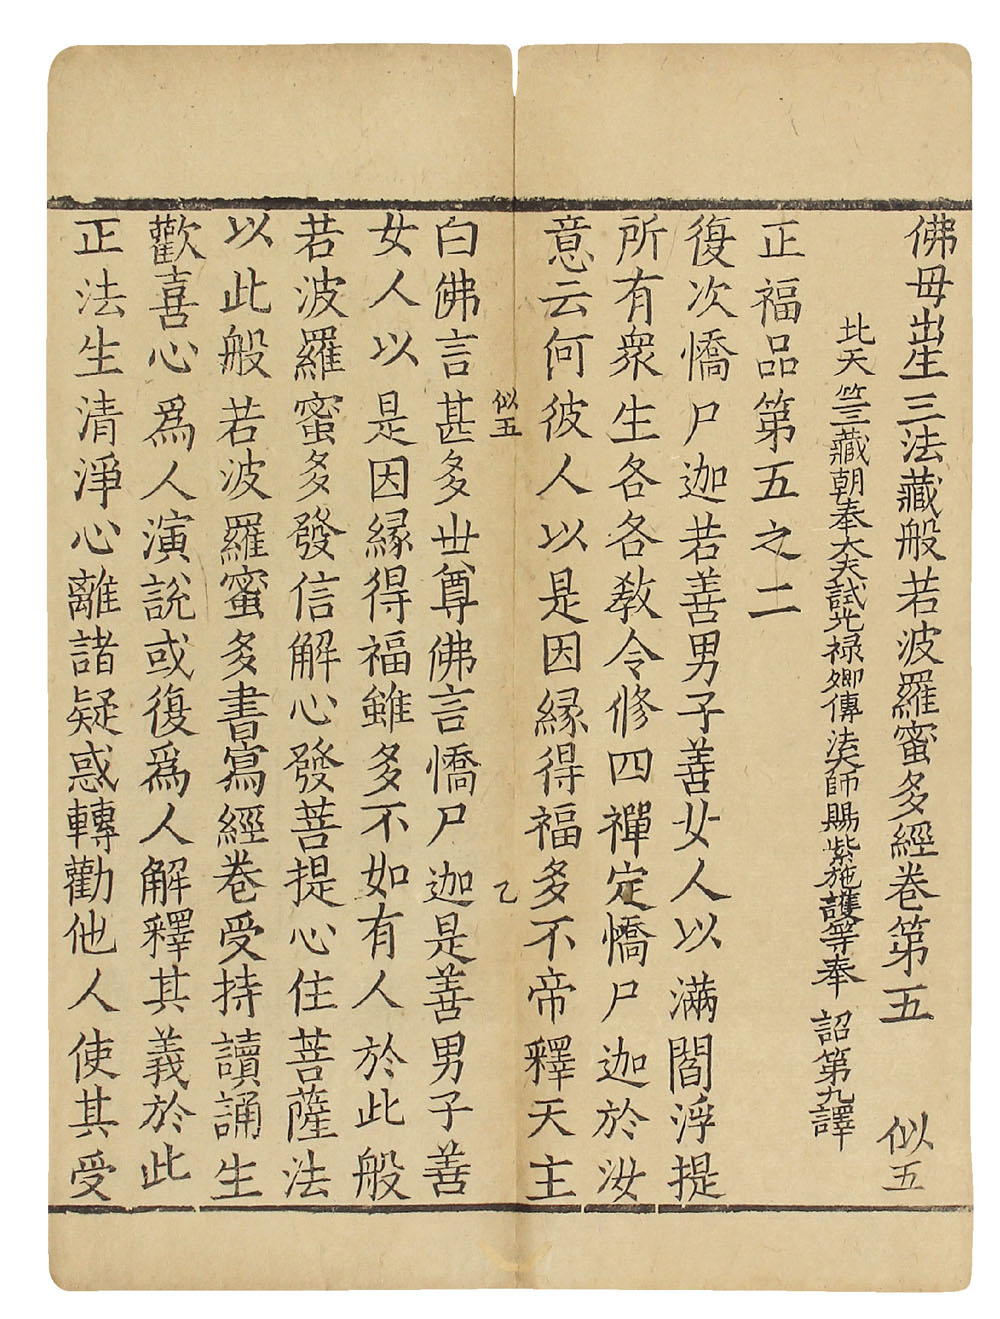 佛母出生三法藏般若波羅蜜多經卷第五 似五
北天竺三藏朝奉大夫試光禄卿傳法大師賜紫施護等奉 詔第九譯
正福品第五之二
復次憍尸迦若善男子善女人以滿閻浮提
所有衆生各各教令修四禪定憍尸迦於汝
意云何彼人以是因緣得福多不帝釋天主
似五 乙
白佛言甚多世尊佛言憍尸迦是善男子善
女人以是因緣得福雖多不如有人於此般
若波羅蜜多發信解心發菩提心住菩薩法
以此般若波羅蜜多書寫經卷受持讀誦生
歡喜心爲人演說或復爲人解釋其義於此
正法生清淨心離諸疑惑轉勸他人使其受